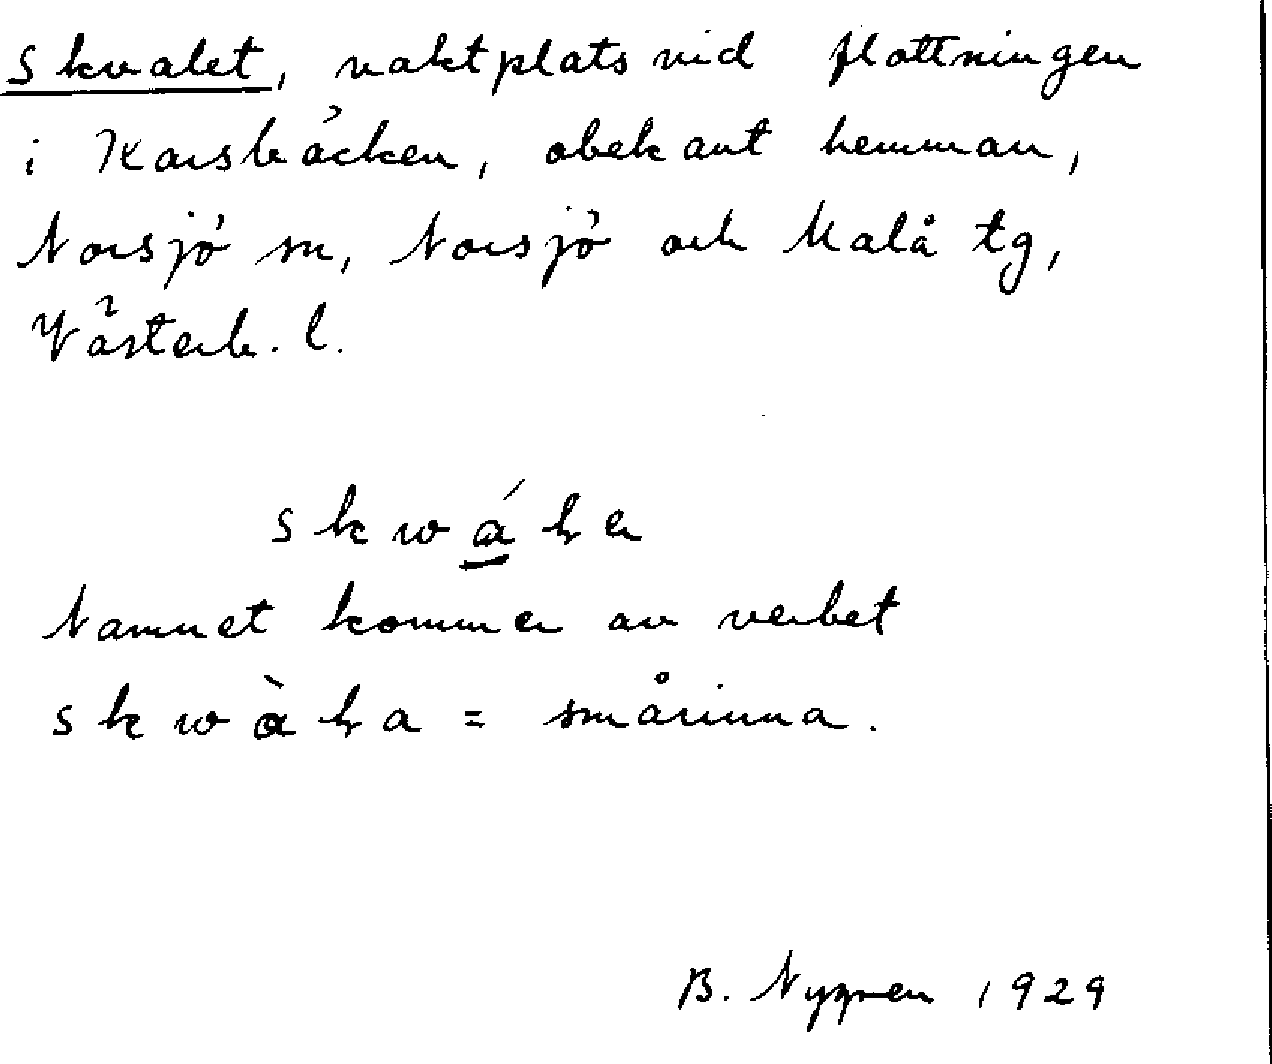 Skvalet, vaktplats vid flottningen
i Karsbäcken, obekant hemman,
Norsjö sn, Norsjö och Malå tg,
Västerb. l.
skwáɫe
Namnet kommer av verbet
skwàɫa = smårinna.
B. Nygren 1929